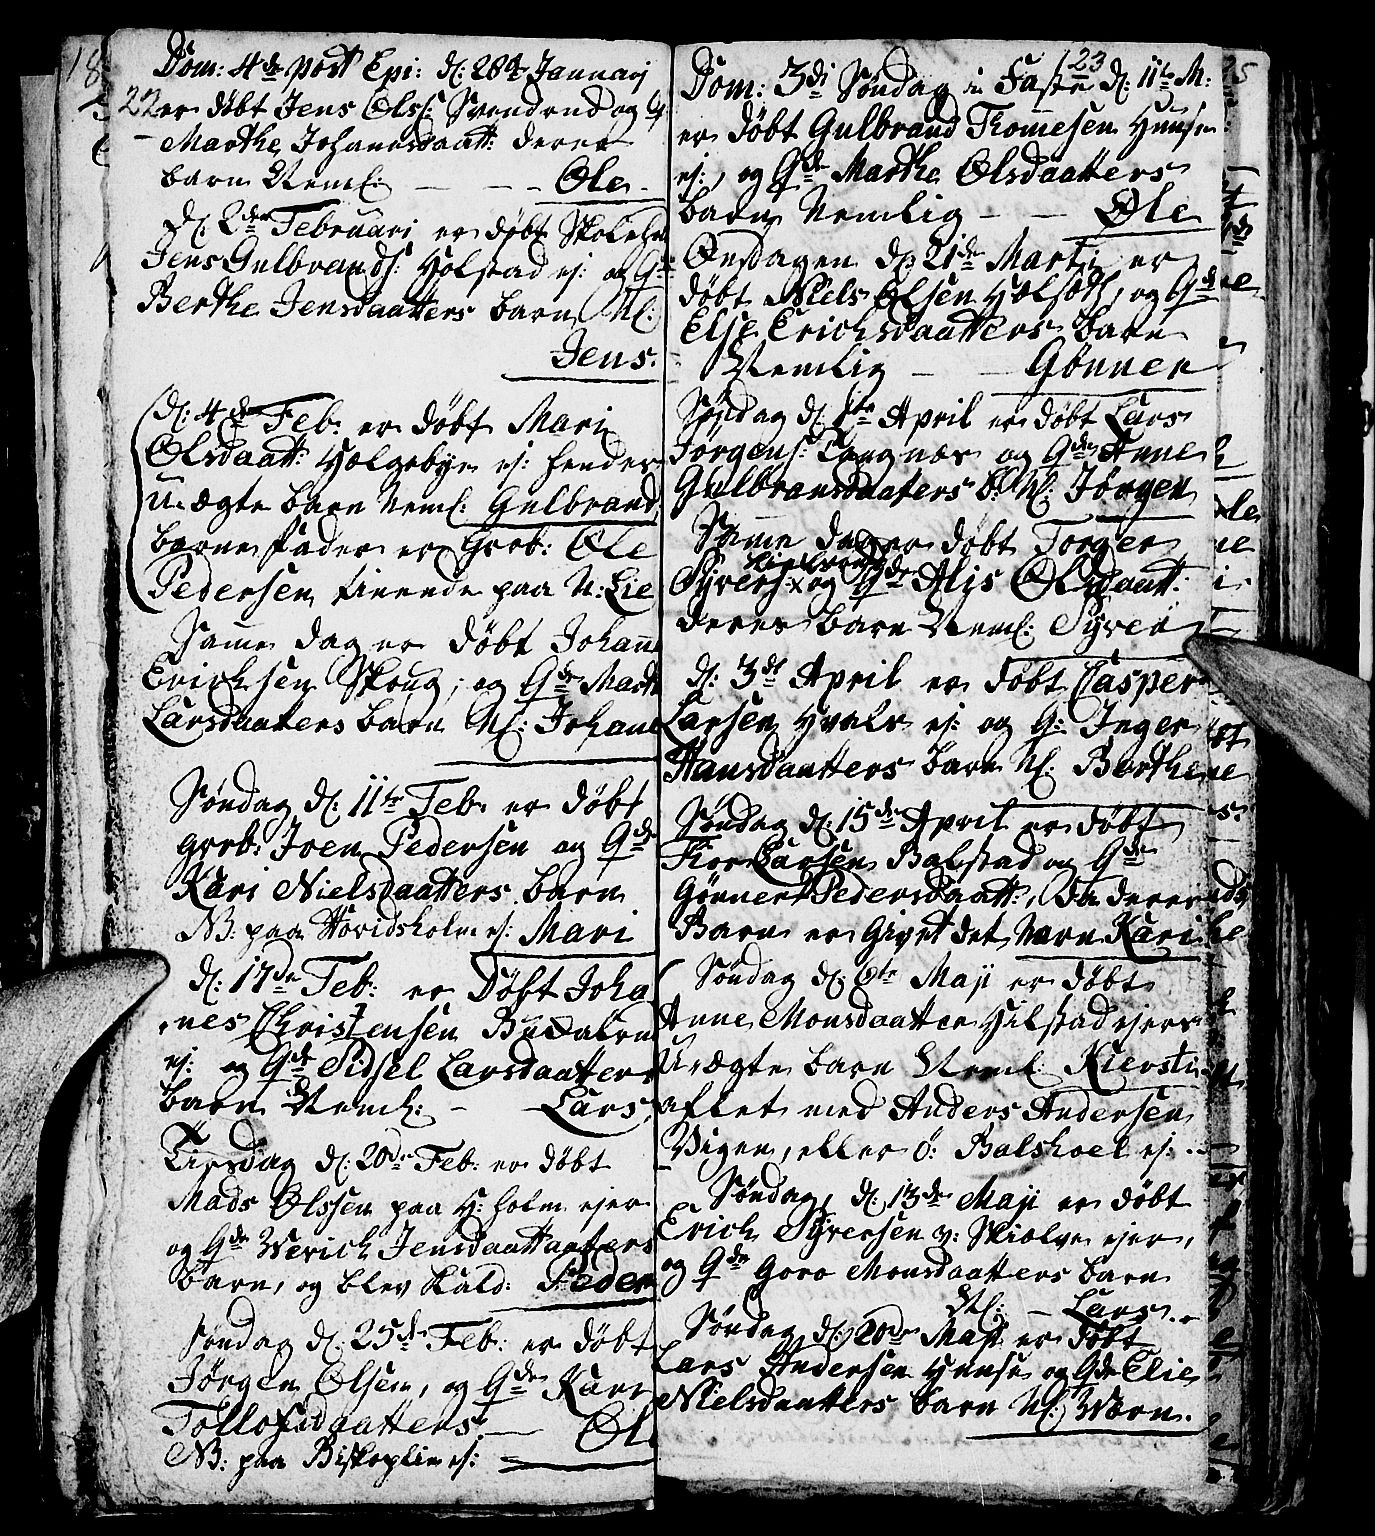 22
Dom: 4de post Epi: d: 28de Januarj
er døbt Jens Ols: Svendrud og
Marthe Johannsdaatt: deres
barn Neml: - - - Ole -
d: 2den Februari er døbt Skoleh
Jens Gulbrands: Holstad ej: og Gde
Berthe Jensdaatters barn Nl:
Jens.
d: 4de Feb: er døbt Mari
Olsdaatt: Hælgebye ej: hendes
U-ægte barn Neml: Gulbrand,
barne fader er Grob: Ole
Pedersen tienende paa N: Lie
Samme dag er døbt Johan
Erichsen Skoug, og Gde Marth
Larsdaatters barn Nl: Johan
Søndag d: 11te Feb: er døbt
grob: Joen Pedersen og Gde
Kari Nielsdaatters barn
NB: paa Hovidsholm ej: Mari
d: 17de Feb: er Døbt Joha
nes Christensen Budalen
ej: og Gde Sidsel Larsdaatters
barn Neml: - Lars
Tirsdag d: 20de Feb: er døbt
Mads Olssen paa H: holm ejer
og Gde Werich Jensdaattaatters
barn, og blev kald: Peder
Søndag d: 25de Feb: er døbt
Jørgen Olsen, og Gde Kari
Tollofsdaatters - Ol
NB: paa Biskoplie ej:
123
Dom: 3di Søndag in Faste d: 11te M:
er døbt Gulbrand Thomesen Hunse
ej:, og Gde Marthe Olsdaatters
barn Nemlig - - Ole
Onsdagen d: 21de Marti er
døbt Niels Olsen Holsoth, og Gde
Else Erichsdaatters barn
Nemlig - - Gønner
Søndag d: 1te April er døbt Lars
Jørgens: Langnæs og Gde Anne
Gulbransdaaters b: Nl: Jørgen
Samme dag er døbt Torger
Syvers: og Gde Alis Olsdaatt:
deres barn Neml: Syver
d: 3di April er døbt Casper
Larsen Hvals ej: og G: Inger
Hansdaatters barn Nl: Berthe
Søndag d: 15de April er døbt
Thor Larsen Balstad og Gde
Gønner Pedersdaatt:, Da deres
Barn er Givet det Navn Kari
Søndag d: 6te Maji er døbt
Anne Monsdaatter Hilstad ejers
U-ægte barn Neml: Kiersti
aflet med Anders Andersen
Vigen, eller ø: Balshoel ej:
Søndag, d: 13de Maji er døbt
Erich Syversen v: Skiølve ejer,
og Gde Goro Monsdaatters barn
Nl: - Lars -
Søndag d: 20de Maji er døbt
Lars Andersen Hunse og Gde Elie
Nielsdaatters barn Nl: Warn.